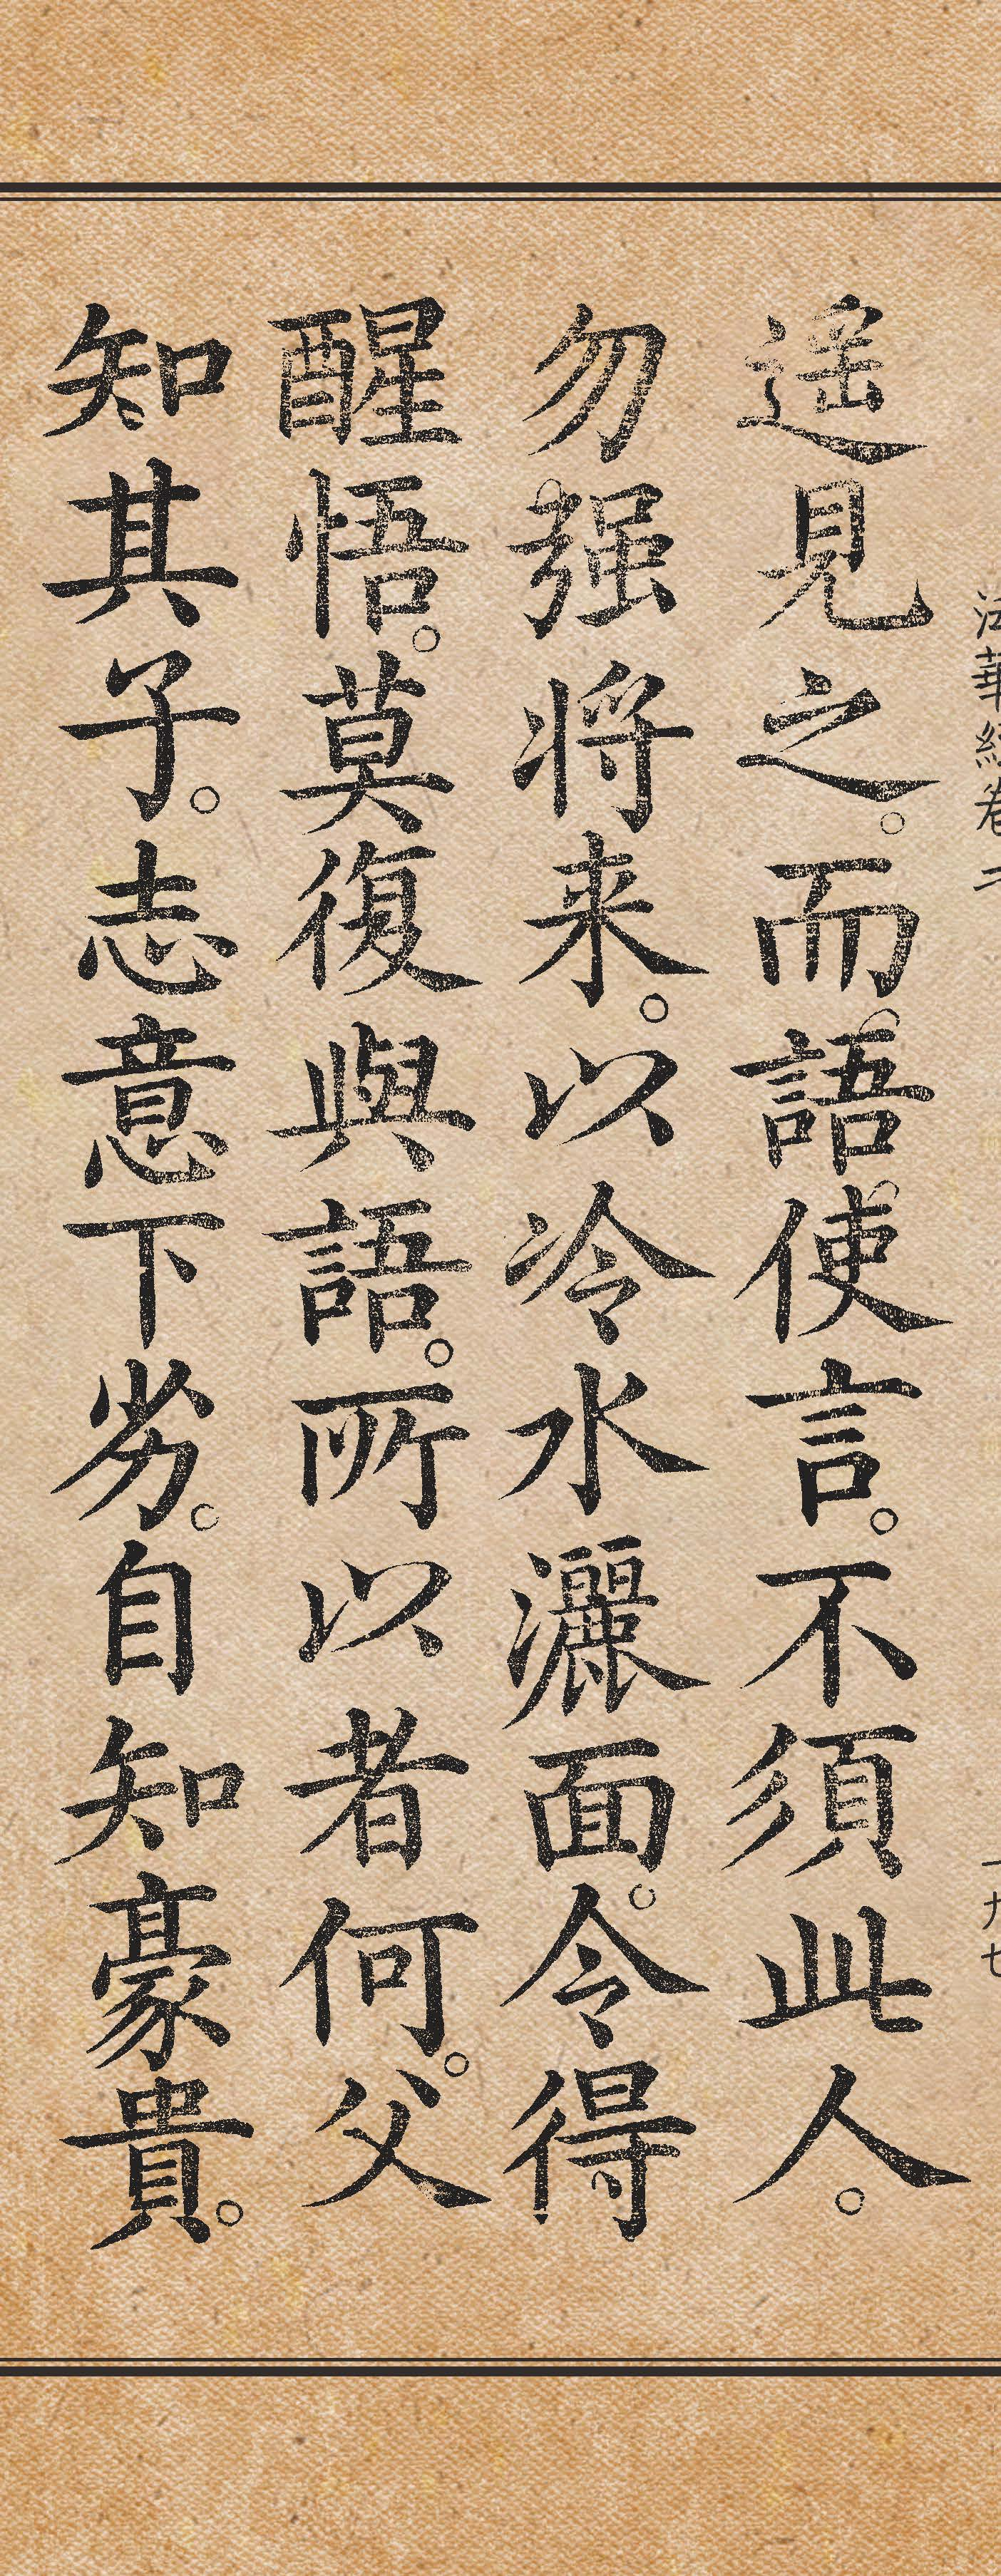 法華經卷二
一九七
遥見之。而語使言。不須此人。
勿强将来。以冷水灑面。令得
醒悟。莫復與語。所以者何。父
知其子。志意下劣。自知豪貴。